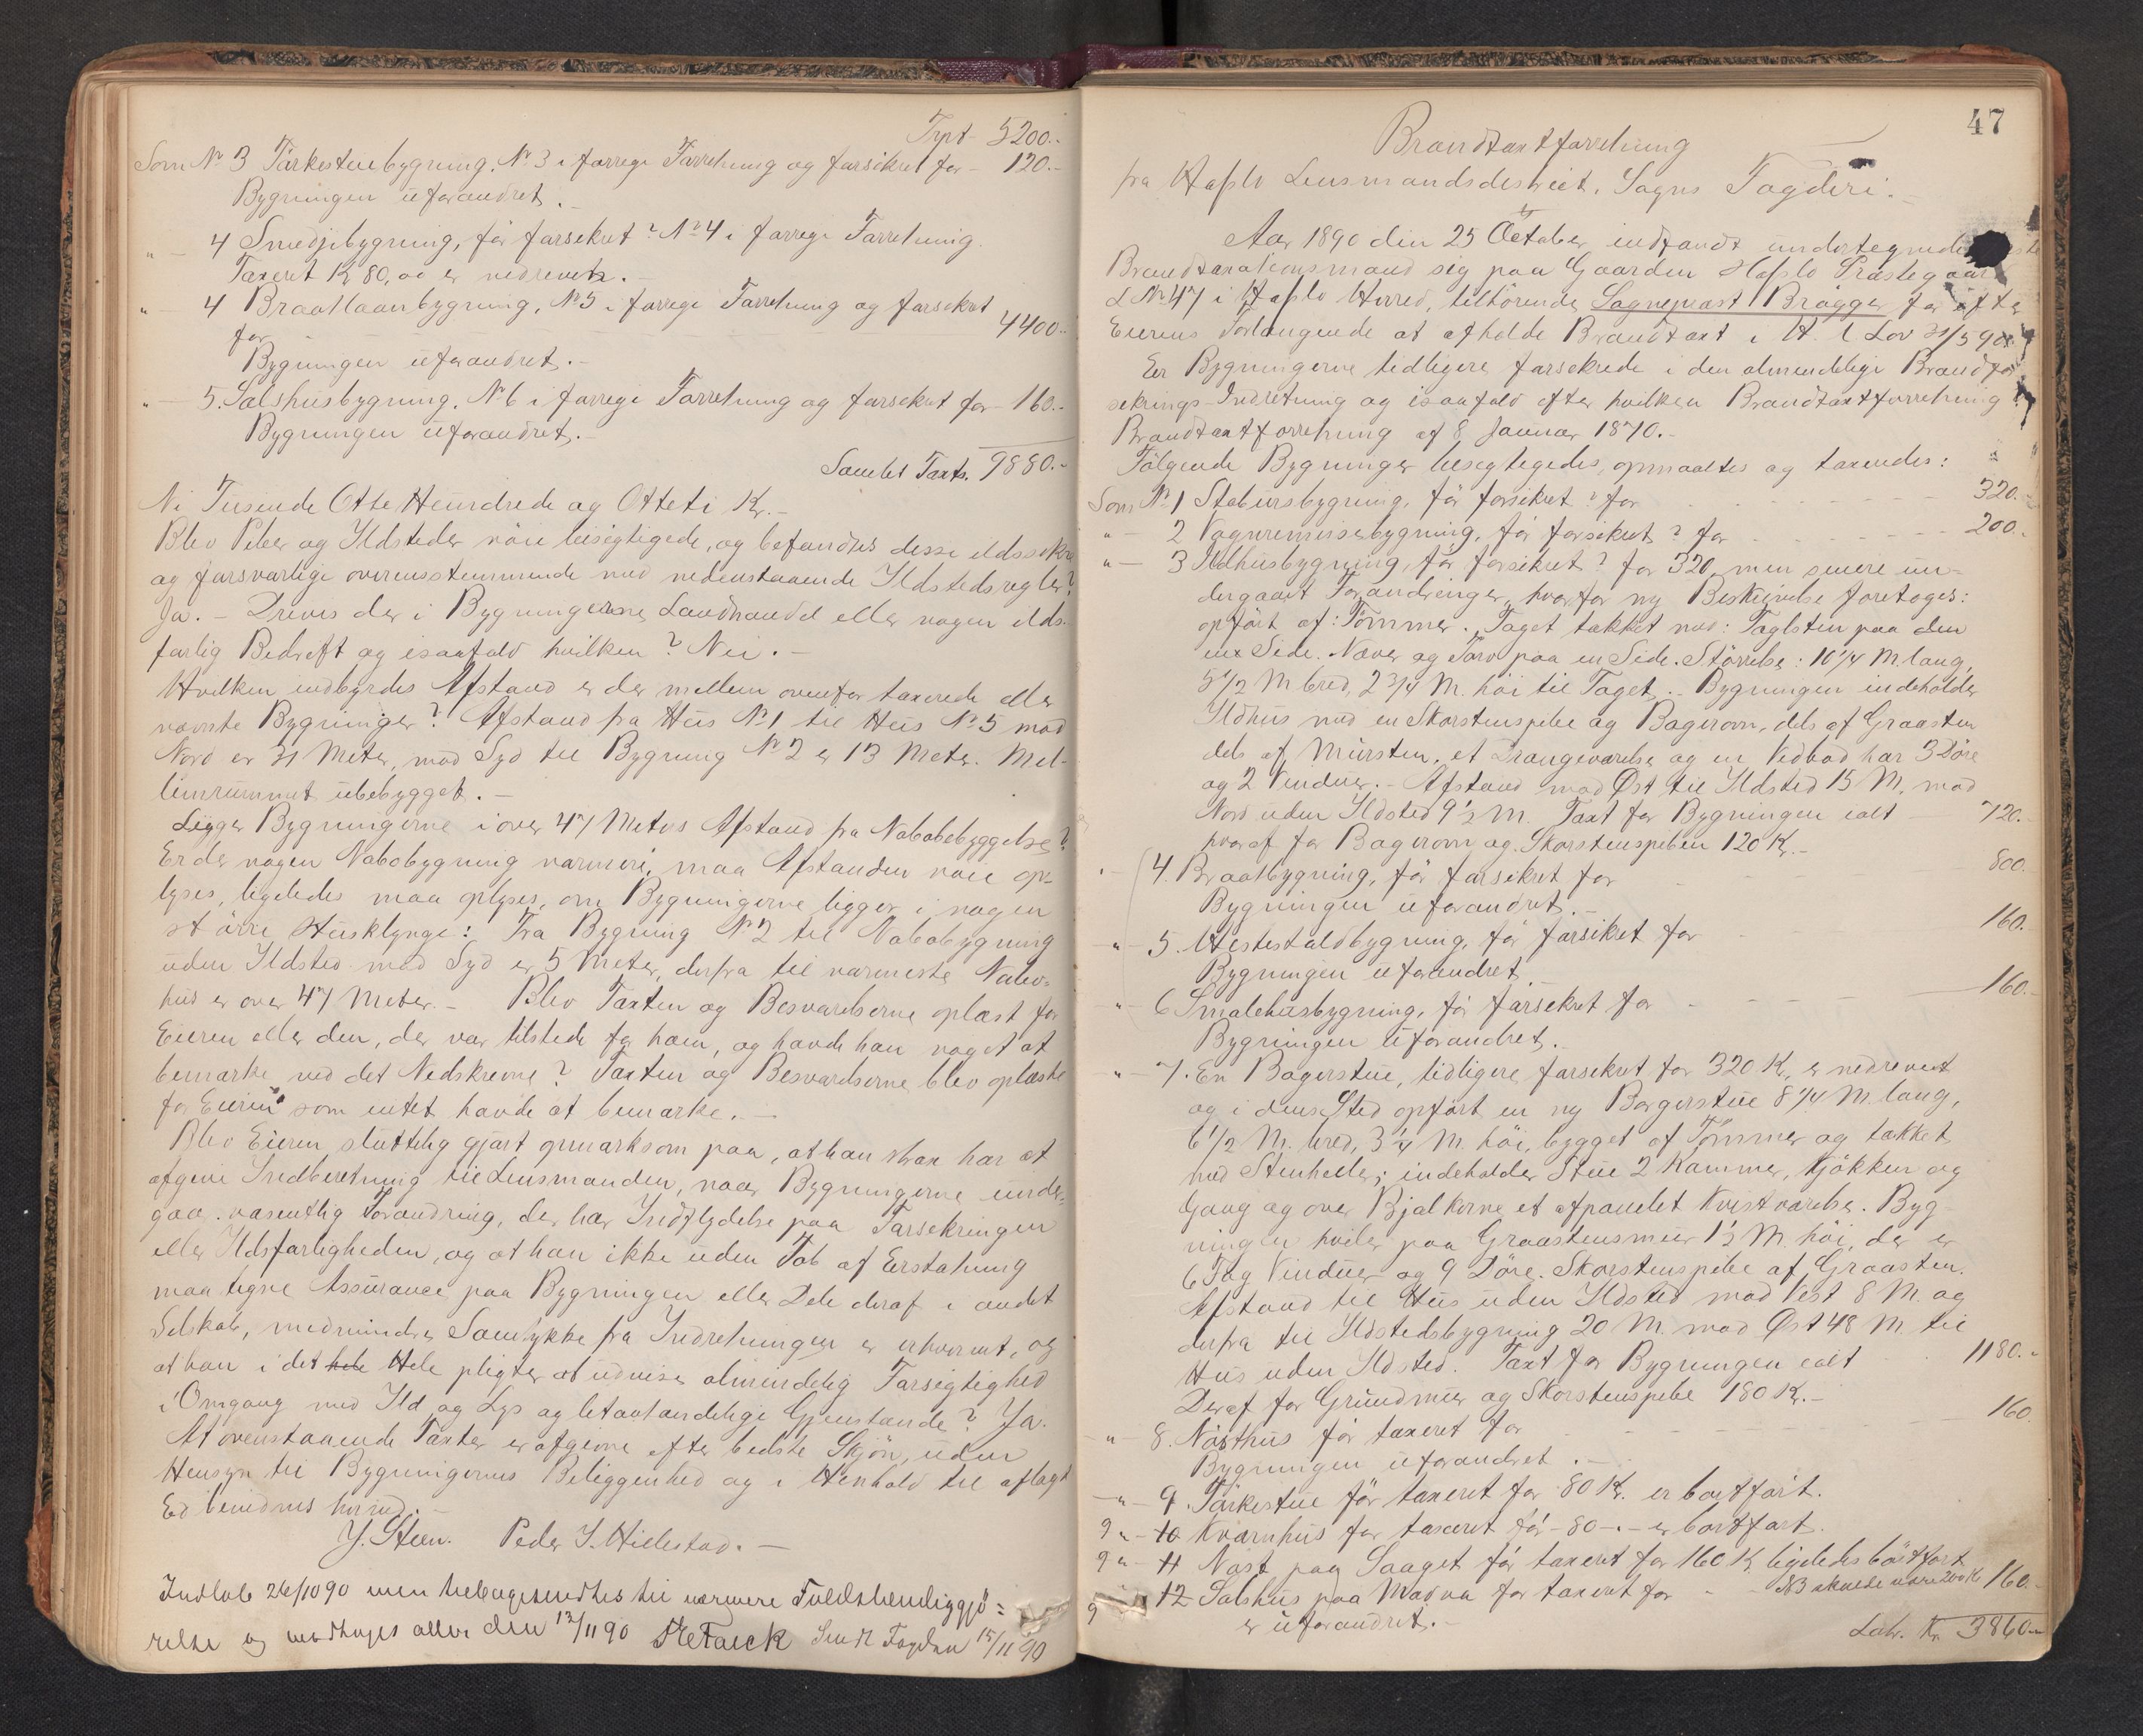 Trpt 5200.-
Som No 3 Tørkestuebygning. No 3 i forrige Forretning og forsikret for - 120.-
Bygningen uforandret.
" - 4 Smedjebygning, før forsekret? No 4 i forrige Forretning.
Taxeret Kr 80,00 er nedrevet. -
" - 4 Braatlaanbygning, No 5 i forrige Forretning og forsekret
for 4400.-
Bygningen uforandret. -
" - 5. Salshusbygning. No 6 i forrige Forretning og forsekret for - 160.-
Bygningen uforandret. -
Samlet Taxt. 9880.-
Ni Tusende Otte Hundrede og Otteti Kr. -
Blev Piber og Ildsteder nøie besigtigede, og befandtes disse ildssikre
og forsvarlige overensstemmende med nedenstaaende Ildstedsregler?
Ja. - Dreves der i Bygningerne Landhandel eller nogen ilds-
farlig Bedrift og isaafald hvilken? Nei. -
Hvilken indbyrdes Afstand er der mellem ovenfor taxerede eller
nævnte Bygninger? Afstand fra Hus No 1 til Hus No 5 mod
Nord er 31 Meter, mod Syd til Bygning No 2 er 13 Meter. Mel-
lemrummet ubebygget. -
Ligger Bygningerne i over 47 Meters Afstand fra Nabobebyggelse?
Er der nogen Nabobygning nærmere, maa Afstanden nøie op-
lyses, ligeledes maa oplyses, om Bygningerne ligger i nogen
større Husklynge: Fra Bygning No 2 til Nabobygning
uden Ildsted mod Syd er 5 Meter, derfra til nærmeste Nabo-
hus er over 47 Meter. - Blev Taxten og Besvarelserne oplæst for
Eieren eller den, der var tilstede for ham, og havde han noget at
bemærke ved det Nedskrevne? Taxten og Besvarelserne blev oplæste
for Eieren som intet havde at bemærke. -
Blev Eieren sluttelig gjort opmærksom paa, at han strax har at
afgive Indberetning til Lensmanden, naar Bygningerne under-
gaa væsentlig Forandring, der har Indflydelse paa Forsekringen
eller Ildsfarligheden, og at han ikke uden Tab af Erstatning
maa tegne Assurance paa Bygningen eller Dele deraf i andet
Selskab, medmindre Samtykke fra Indretningen er erhvervet, og
at han i det hele Hele pligter at udvise almindelig Forsigtighed
i Omgang med Ild og Lys og letantændelige Gjenstande? Ja.
At ovenstaaende Taxter er afgivne efter bedste Skjøn, uden
Hensyn til Bygningernes Beliggenhed og i Henhold til aflagt
Ed bevidnes herved. -
J. Steen. Peder J. Hillestad. -
Indlob 26/10 90 men tilbagesendtes til nærmere Fuldstændiggjö=
relse og modtoges atter den 12/11 90 Sendt Fogden 15/11 90
47
Brandtaxtforretning
fra Hafslo Lensmandsdestrict, Sogns Fogderi.
Aar 1890 den 25 October indfandt undertegnede
Brandtaxationsmænd sig paa Gaarden Hafslo Præstegaard
L No 47 i Hafslo Herred, tilhörende Sognepræst Brögger for efter
Eierens Forlangende at afholde Brandtaxt i H. t Lov 31/5 90
Er Bygningerne tidligere forsekrede i den almendelige Brandfor
sekrings-Indretning og isaafald efter hvilken Brandtaxtforretning?
Brandtaxtforretning af 8 Januar 1870. -
Følgende Bygninger besegtegedes, opmaaltes og taxeredes:
Som No 1 Stabursbygning, før forsikret? for 320.-
" - 2 Vognremisebygning, før forsikret? for 200.-
" - 3 Ildhusbygning, før forsikret? for 320, men senere un-
dergaaet Forandringer, hvorfor ny Beskrivelse foretages:
opført af: Tømmer. Taget tækket med: Taglsten paa den
ene Side. Næver og Torv paa en Side. Störrelse: 10 1/4 M. lang,
5 1/2 M. bred, 2 3/4 M. höi til Taget. - Bygningen indeholder
Ildhus med en Skorstenspibe og Bagerovn, dels af Graasten
dels af Mursten, et Drængeværelse og en Vedbod har 3 Döre
og 2 Vinduer. - Afstand mod Øst til Ildsted 15 M, mod
Nord uden Ildsted 9 1/2 M. Taxt for Bygningen ialt - 720.-
hvoraf for Bagerovn og Skorstenspiben 120 Kr. -
" - 4. Braatbygning, før forsikret for 800.
Bygningen uforandret. -
" - 5. Hestestaldbygning, før forsikret for 160.-
Bygningen uforandret
" - 6 Smalehusbygning, før forsekret for 160.-
Bygningen uforandret.
" - 7. En Bagerstue, tidligere forsekret for 320 Kr, er nedrevet
og i dens Sted opført en ny Borgerstue 8 1/4 M. lang,
6 1/2 M. bred, 3 1/4 M. höi, bygget af Tömmer og tækket
med Stenheller; indeholder Stue 2 Kammer, Kjøkken og
Gang og over Bjælkerne et afpanelet Kvistværelse. Byg-
ningen hviler paa Graastensmur 1 1/2 M. höi, der er
6 Fag Vinduer og 9 Döre. Skorstenspibe af Graasten.
Afstand til Hus uden Ildsted mod Vest 8 M. og
derfra til Ildstedsbygning 20 M. mod Øst 48 M. til
Hus uden Ildsted. Taxt for Bygningen ialt 1180.-
Deraf for Grundmur og Skorstenspibe 180 Kr. -
" - 8. Nösthus før taxeret for 160.
Bygningen uforandret. -
" - 9. Törkestue för taxeret for 80 Kr. er bortført.
9 " - 10 Kværnhus før taxeret før - 80 -. - er bortført.
9 " - 11 Nøst paa Saaget før taxeret for 160 Kr ligeledes bortført
12 Salshus paa før taxeret for - - N3 skulde være 200 Kr 160.-
9 er uforandret. -
Lab. Kr. 3860.-